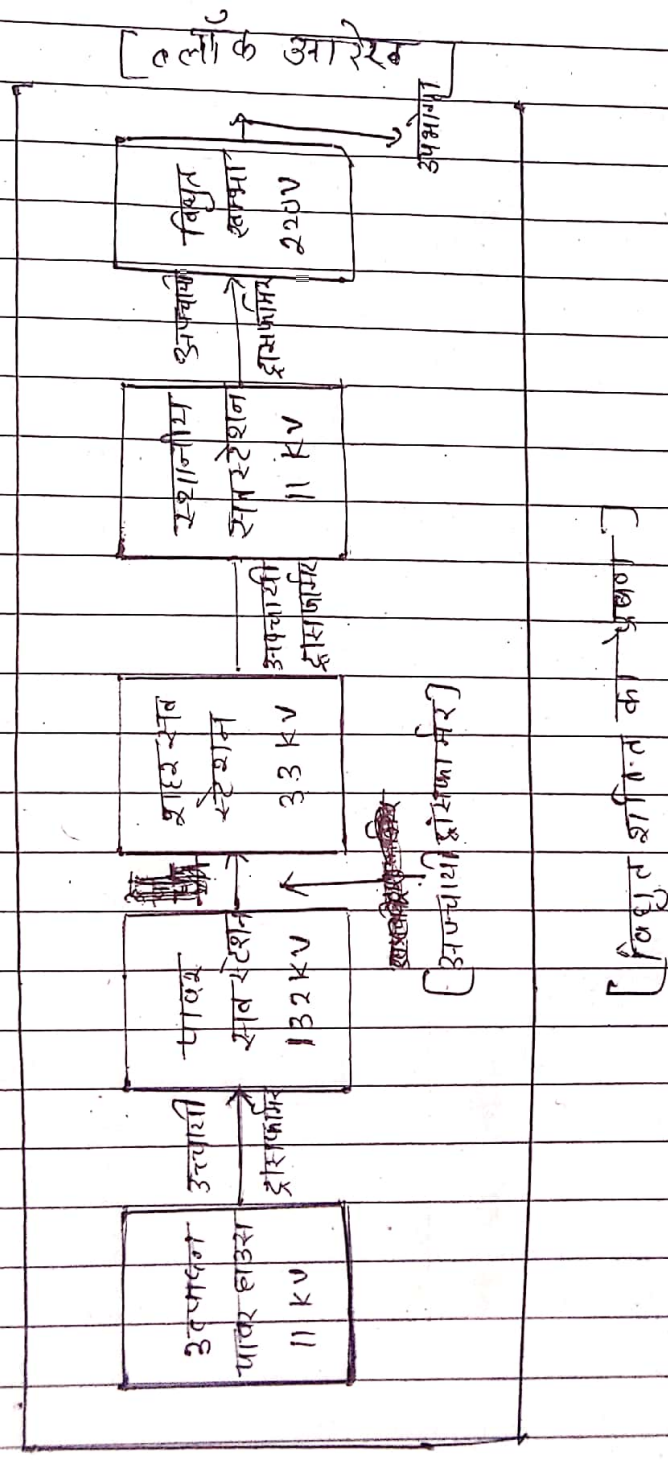 [ ब्लॉक आरेख ]
उत्पादन
पावर हाउस
11 KV
उच्चायी
ट्रांसफॉर्मर
पावर
सब स्टेशन
132KV
[अपचायी ट्रांसफार्मर]
शहर सब
स्टेशन
33 KV
अपचायी
ट्रांसफॉर्मर
स्थानीय
सब स्टेशन
11 KV
अपचायी
ट्रांसफॉर्मर
विद्युत
खम्भा
220V
उपभोक्ता
[ विद्युत शक्ति का प्रेषण ]